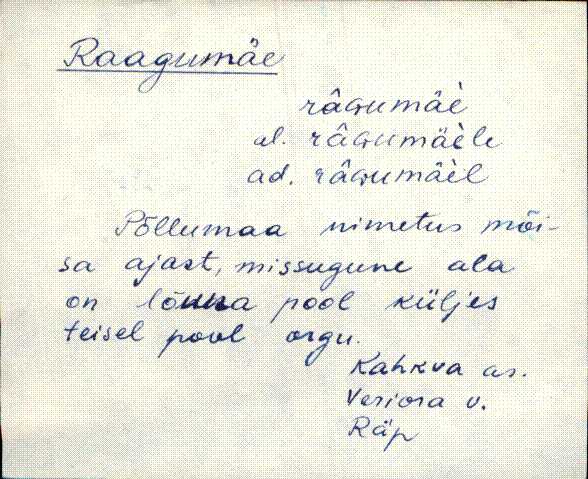 Raagumäe
râɢumäè
al. râɢumäèle
ad. râɢumäèl
Põllumaa nimetus mõi-
sa ajast, missugune ala
on lõuna pool küljes
teisel pool orgu.
Kahkva as.
Veriora v.
Räp